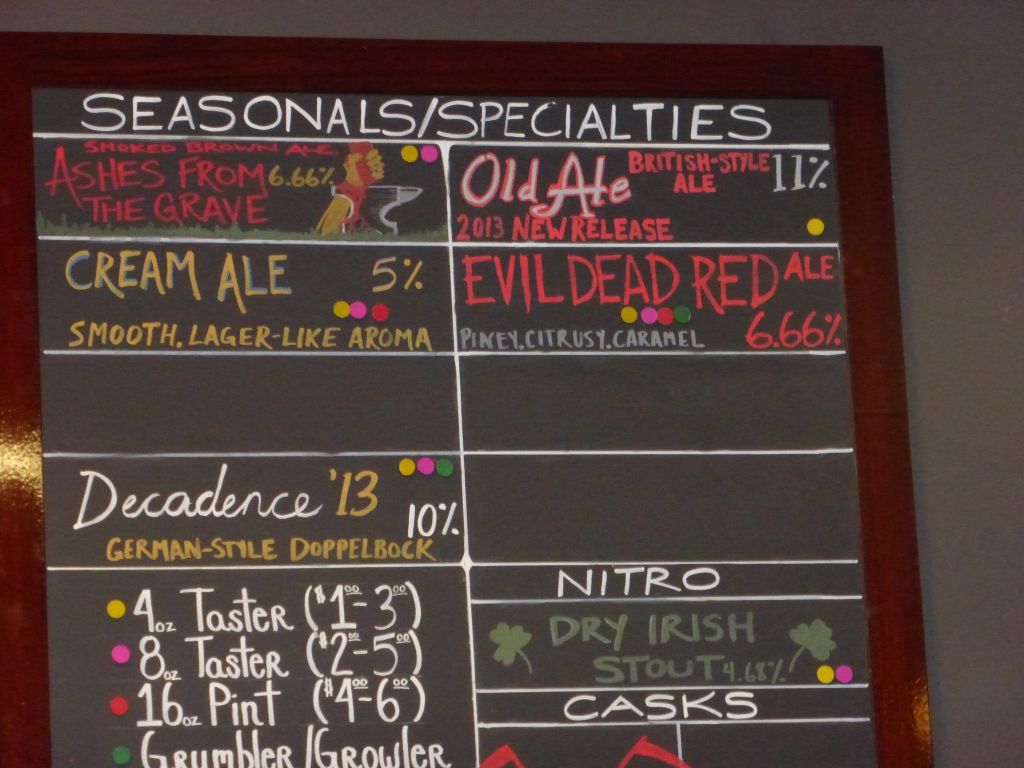 SEASONALS/SPECIALTIES
SMOKED BROWN ALE
ASHES FROM 6.66%
THE GRAVE
Old Ale BRITISH-STYLE ALE 11%
2013 NEW RELEASE
CREAM ALE 5%
SMOOTH, LAGER-LIKE AROMA
EVIL DEAD RED ALE
PINEY, CITRUSY, CARAMEL 6.66%
Decadence '13
10%
GERMAN-STYLE DOPPELBOCK
4oz Taster ($1.00-3.00)
8oz Taster ($2.00-5.00)
16oz Pint ($4.00-6.00)
Grumbler/Growler
NITRO
DRY IRISH
STOUT 4.68%
CASKS